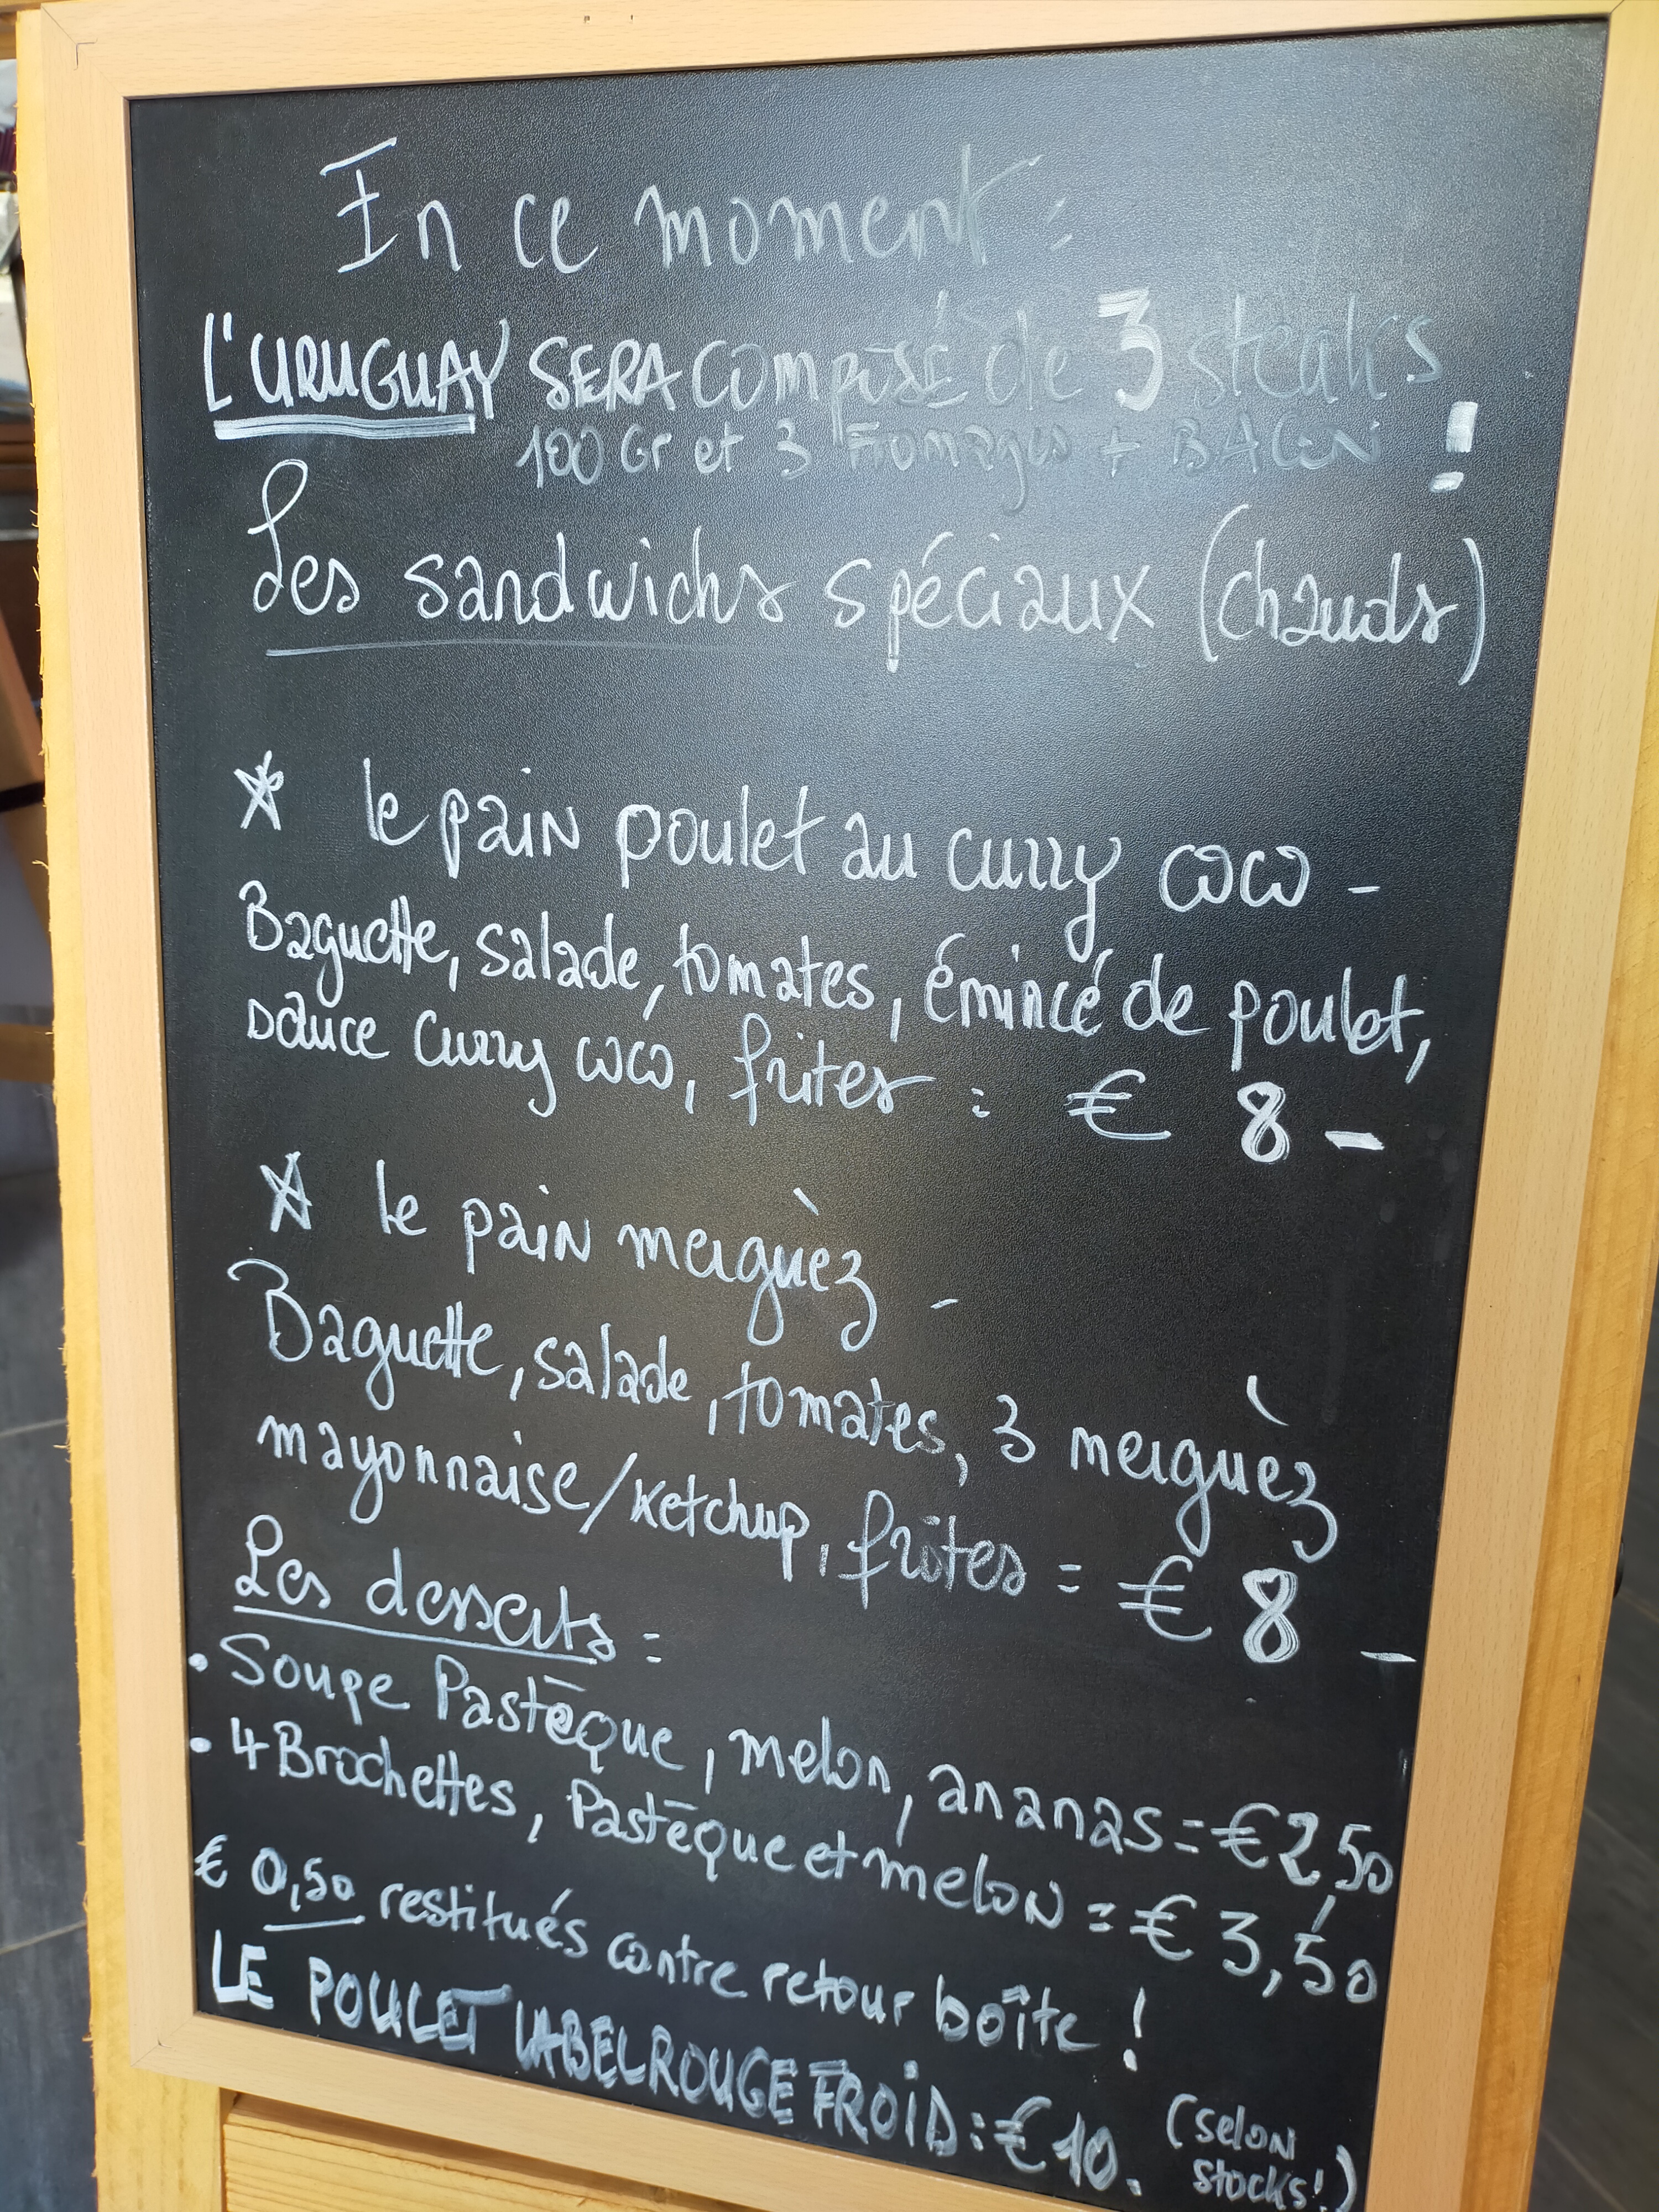 En ce moment :
L'URUGUAY SERA COMPOSÉ de 3 steaks
100 Gr et 3 Fromages + BACON !
Les sandwichs spéciaux (chauds)
* le pain poulet au curry coco -
Baguette, salade, tomates, émincé de poulet,
sauce curry coco, frites : € 8 -
* le pain merguèz -
Baguette, salade, tomates, 3 merguèz
mayonnaise/ketchup, frites = € 8 -
Les desserts :
• Soupe Pastèque, melon, ananas = € 2,50
• 4 Brochettes, Pastèque et melon = € 3,50
€ 0,50 restitués contre retour boîte !
LE POULET LABEL ROUGE FROID : € 10. (selon
stocks!)